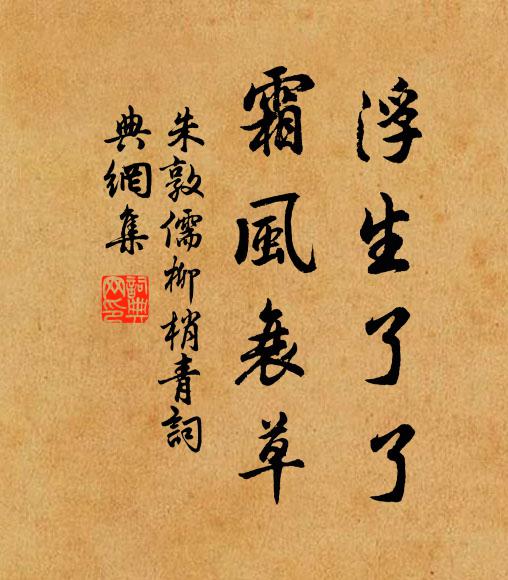 浮生了了
霜風衰草
朱敦儒柳梢青詞
典網集
詞典
网印